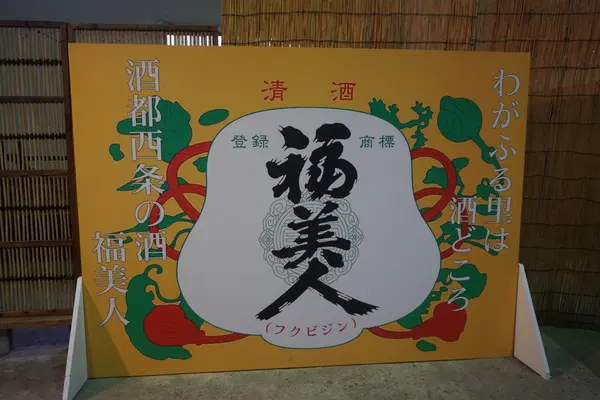 わがふる里は
酒どころ
清酒
登録 商標
福美人
(フクビジン)
酒都西条の酒
福美人